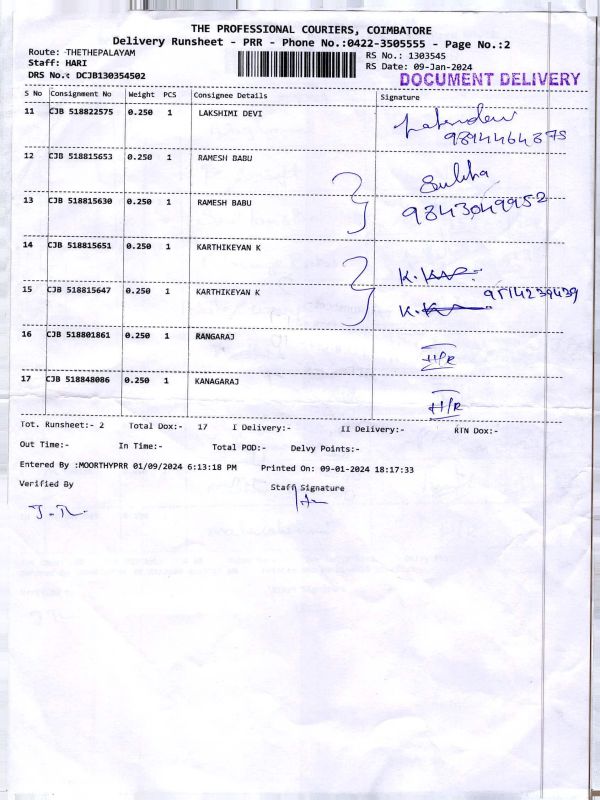 THE PROFESSIONAL COURIERS, COIMBATORE
Delivery Runsheet - PRR - Phone No.:0422-3505555 - Page No.:2
Route: -THETHEPALAYAM
RS No.: 1303545
Staff: HARI
RS Date: 09-Jan-2024
DRS No.: DCJB130354502
DOCUMENT DELIVERY
S No Consignment No Weight PCS Consignee Details Signature
11 CJB 518822575 0.250 1 LAKSHIMI DEVI
12 CJB 518815653 0.250 1 RAMESH BABU
13 CJB 518815630 0.250 1 RAMESH BABU 9843049952
14 CJB 518815651 0.250 1 KARTHIKEYAN K
15 CJB 518815647 0.250 1 KARTHIKEYAN K
16 CJB 518801861 0.250 1 RANGARAJ H/R
17 CJB 518848086 0.250 1 KANAGARAJ H/R
Tot. Runsheet:- 2 Total Dox:- 17 I Delivery:- II Delivery:- RTN Dox:-
Out Time:- In Time:- Total POD:- Delvy Points:-
Entered By :MOORTHYPRR 01/09/2024 6:13:18 PM Printed On: 09-01-2024 18:17:33
Verified By Staff Signature